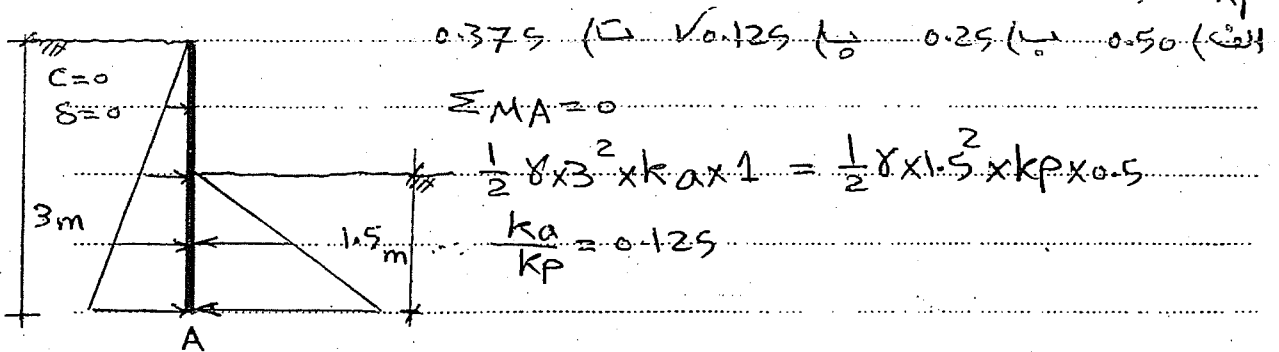 الف) 0.50 ب) 0.25 پ) 0.125 √ ت) 0.375
C=0
δ=0
ΣMA=0
1/2 γ×3²×ka×1 = 1/2 γ×1.5²×kp×0.5
3m
1.5m
ka/kp = 0.125
A